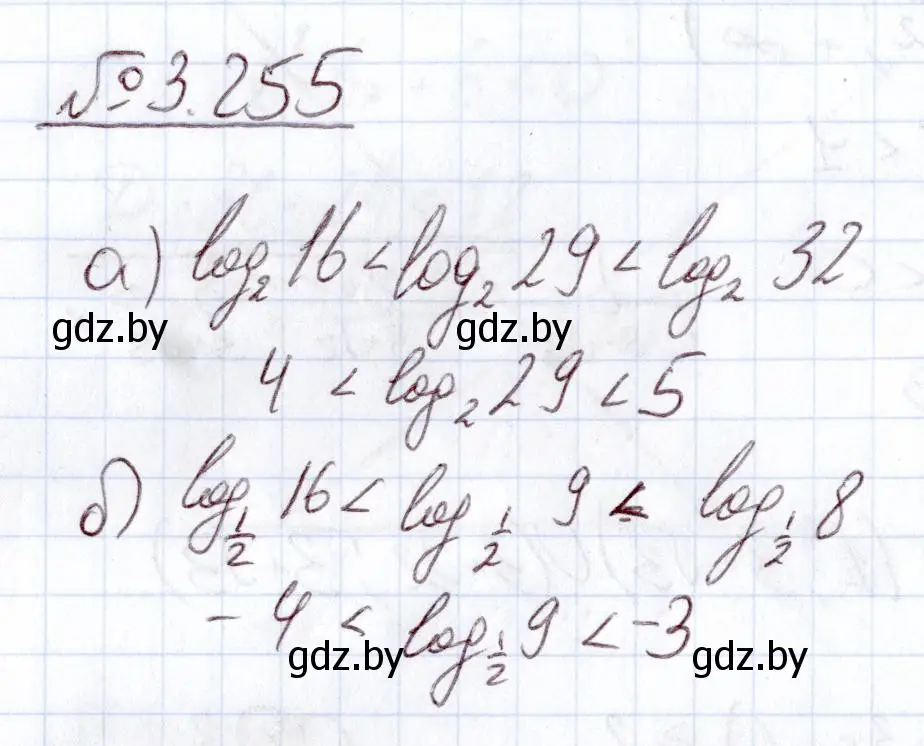 №3.255
а) log₂ 16 < log₂ 29 < log₂ 32
gdz.by gdz.by
4 < log₂ 29 < 5
б) log½ 16 < log½ 9 < log½ 8
-4 < log½ 9 < -3
gdz.by gdz.by